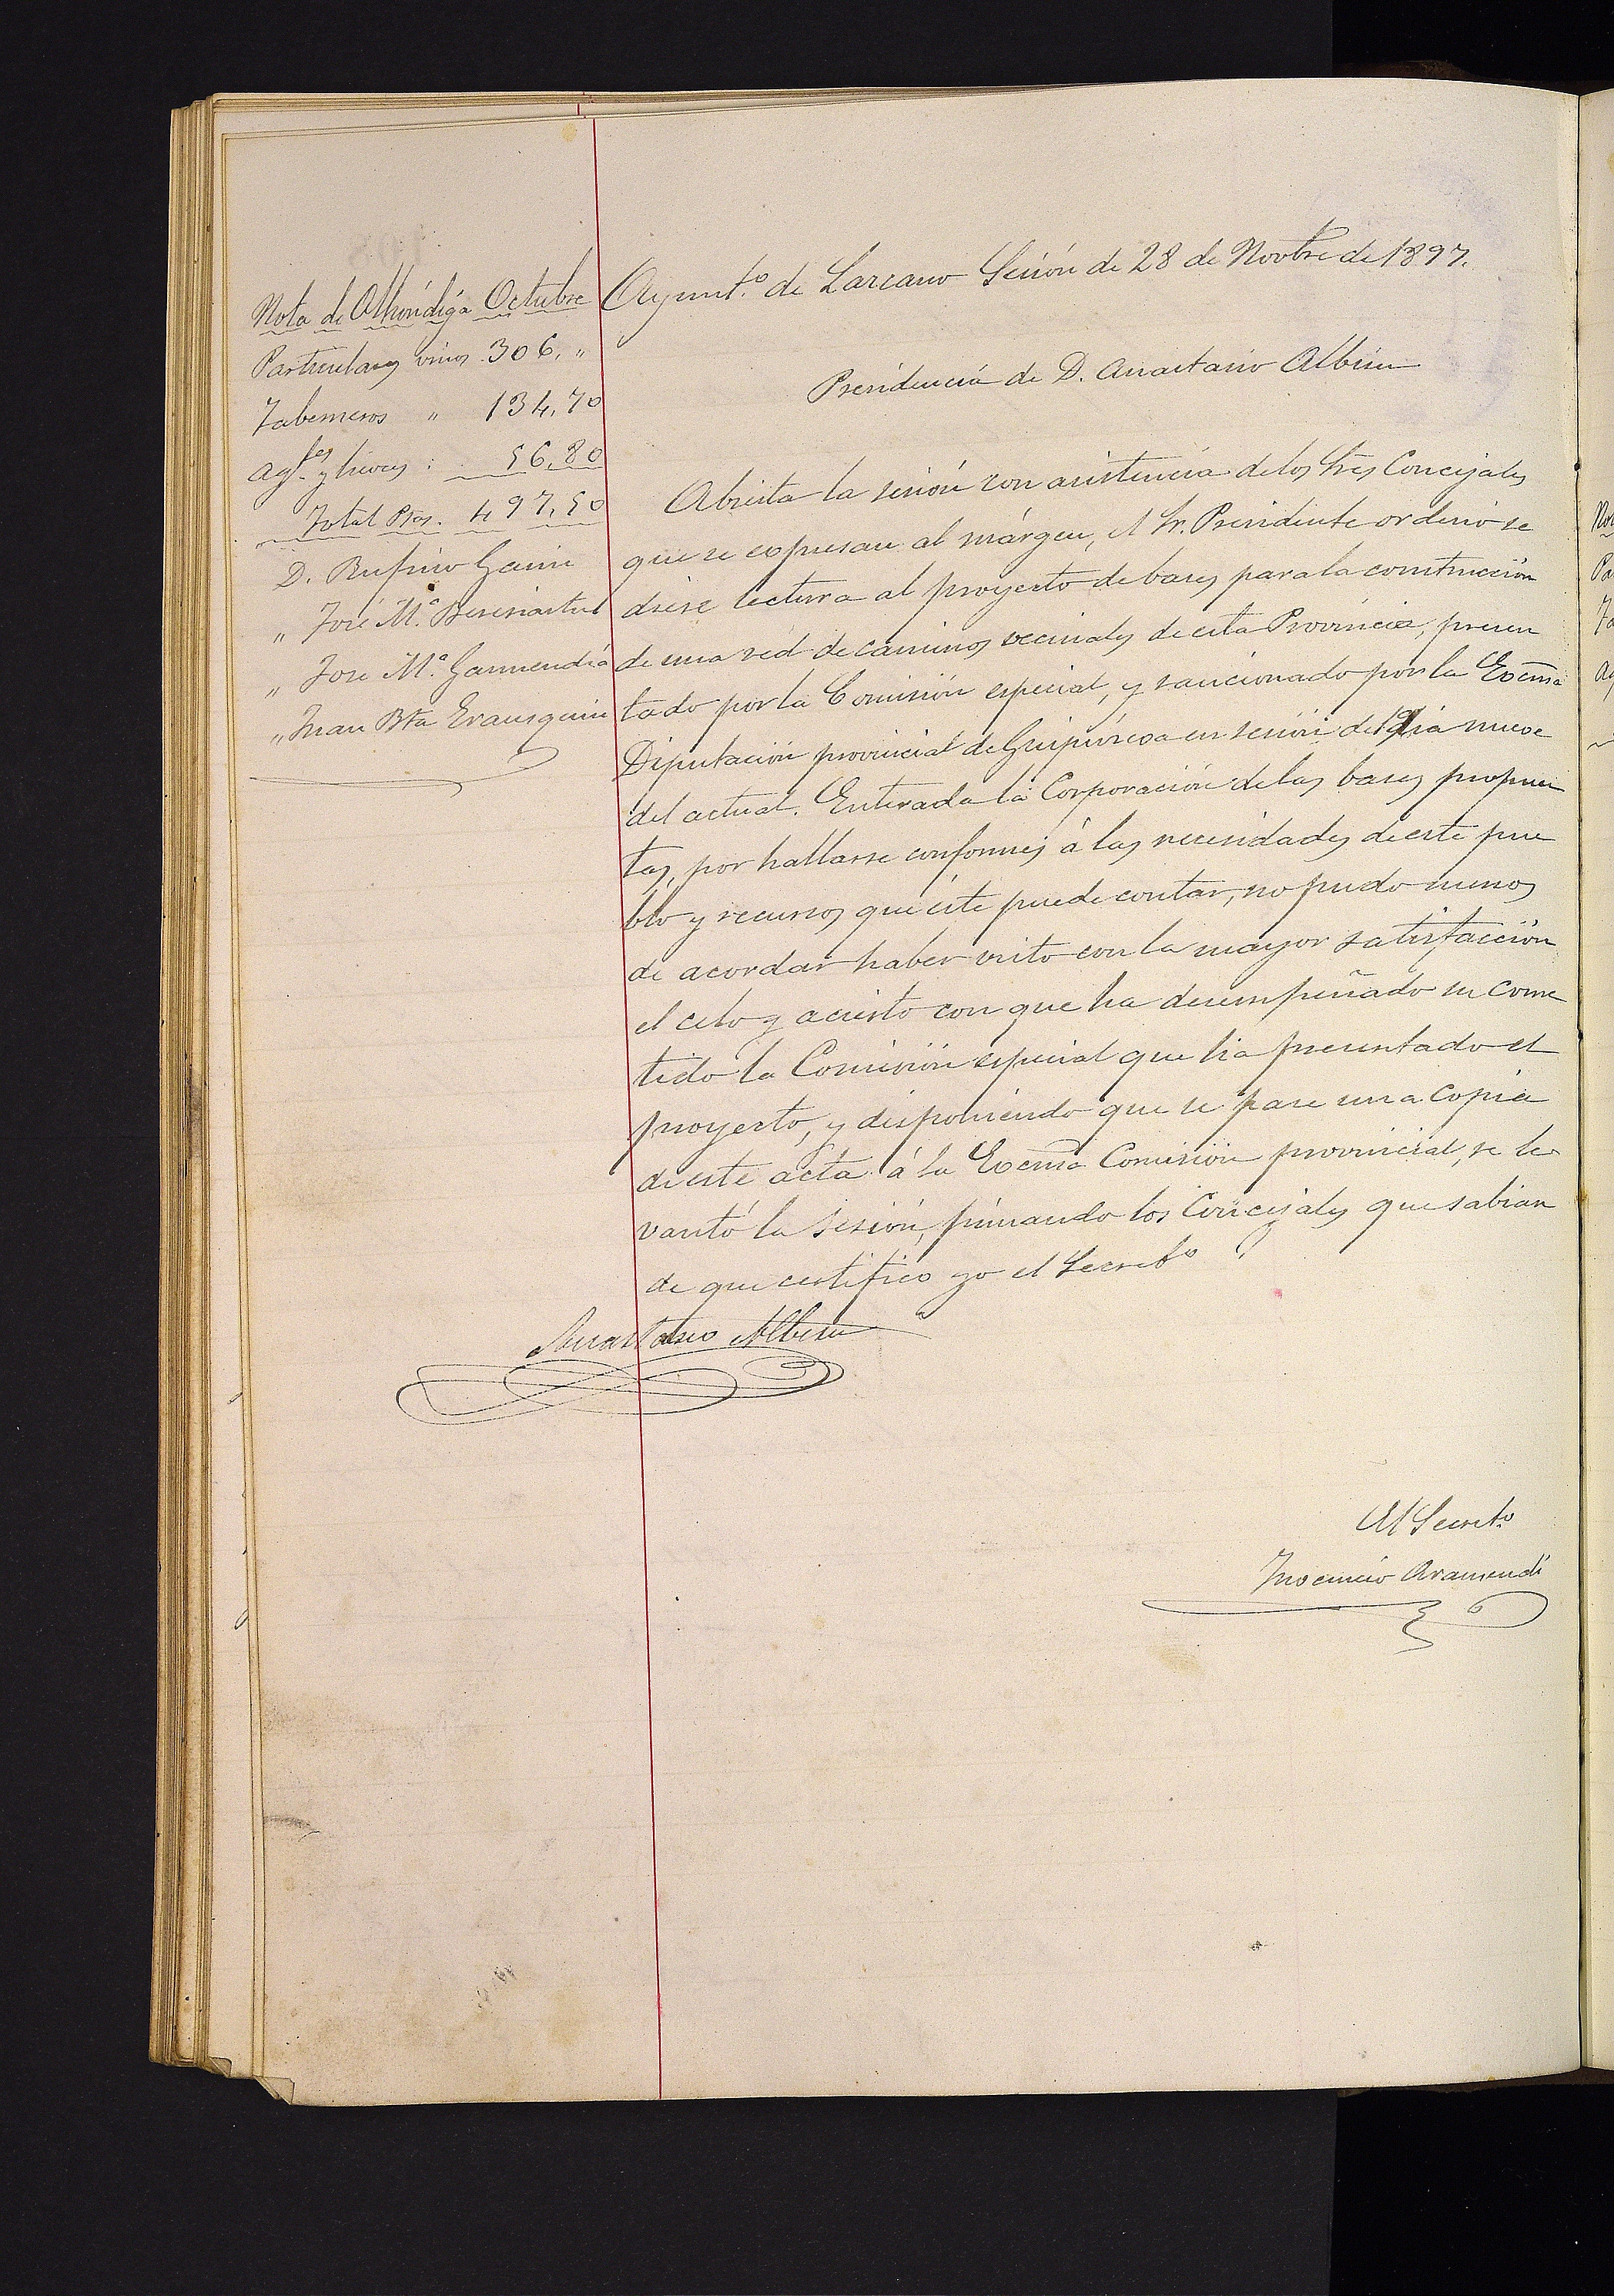 Nota de Alhóndiga Octubre
Particulares vinos 306, "
Taberneros " 134,70
Ag.tes y licores : 56,80
Total Ptas. 497,50
D. Rufino Gainza
" José M.ª Beresiartu
" José M.ª Garmendia
" Juan Bta Erausquin
Ayunt.º de Lazcano Sesión de 28 de Novbre de 1897.
Presidencia de D. Anastasio Albisu
Abierta la sesión con asistencia de los Sres Concejales
que se expresan al márgen, el Sr. Presidente ordenó se
diese lectura al proyecto de bases para la construcción
de una red de caminos vecinales de esta Provincia, presen
tado por la Comisión especial, y sancionado por la Excma
Diputación provincial de Guipúzcoa en sesión del día nueve
del actual. Enterada la Corporación de las bases propues
tas, por hallarse conformes á las necesidades de este pue
blo y recursos que éste puede contar, no pudo menos
de acordar haber visto con la mayor satisfacción
el celo y acierto con que ha desempeñado su come
tido la Comisión especial que ha presentado el
proyecto, y disponiendo que se pase una copia
de este acta á la Excma Comisión provincial, se le
vantó la sesión, firmando los Concejales que sabian
de que certifico yo el Secret.º
Anastasio Albisu
El Secret.º
Inocencio Aramendi